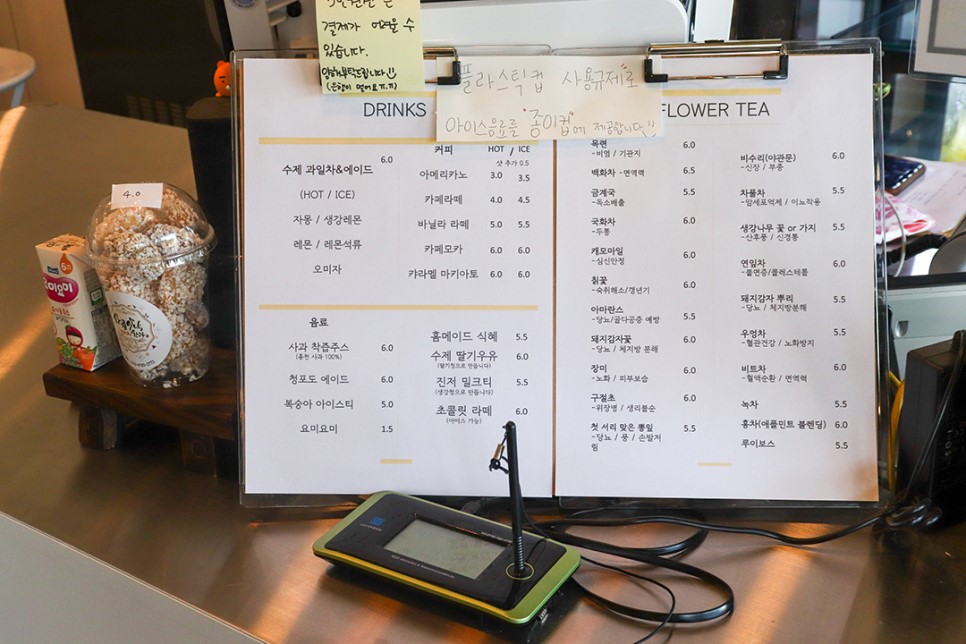 결제가 어려울 수
있습니다.
양해부탁드립니다
플라스틱컵 사용규제로
아이스음료를 종이컵에 제공합니다!!
4.0
요미요미
DRINKS
수제 과일차&에이드 6.0
(HOT / ICE)
자몽 / 생강레몬
레몬 / 레몬석류
오미자
커피 HOT / ICE
샷 추가 0.5
아메리카노 3.0 3.5
카페라떼 4.0 4.5
바닐라 라떼 5.0 5.5
카페모카 6.0 6.0
캬라멜 마키아토 6.0 6.0
음료
사과 착즙주스 6.0
(홍천 사과 100%)
청포도 에이드 6.0
복숭아 아이스티 5.0
요미요미 1.5
홈메이드 식혜 5.5
수제 딸기우유 6.0
(딸기청으로 만듭니다)
진저 밀크티 5.5
(생강청으로 만듭니다)
초콜릿 라떼 6.0
(아이스 가능)
FLOWER TEA
목련 6.0
-비염 / 기관지
백화차 -면역력 6.5
금계국 5.5
-독소배출
국화차 6.0
-두통
캐모마일 6.0
-심신안정
칡꽃 6.0
-숙취해소/갱년기
아마란스 5.5
-당뇨/골다공증 예방
돼지감자꽃 6.0
-당뇨 / 체지방 분해
장미 6.0
-노화 / 피부보습
구절초 6.0
-위장병 / 생리불순
첫 서리 맞은 뽕잎 5.5
-당뇨 / 풍 / 손발저
림
비수리(야관문) 6.0
-신장 / 부종
차풀차 5.5
-암세포억제 / 이뇨작용
생강나무 꽃 or 가지 5.5
-산후풍 / 신경통
연잎차 6.0
-불면증/콜레스테롤
돼지감자 뿌리 5.5
-당뇨 / 체지방분해
우엉차 5.5
-혈관건강 / 노화방지
비트차 6.0
-혈액순환 / 면역력
녹차 5.5
홍차(애플민트 블렌딩) 6.0
루이보스 5.5